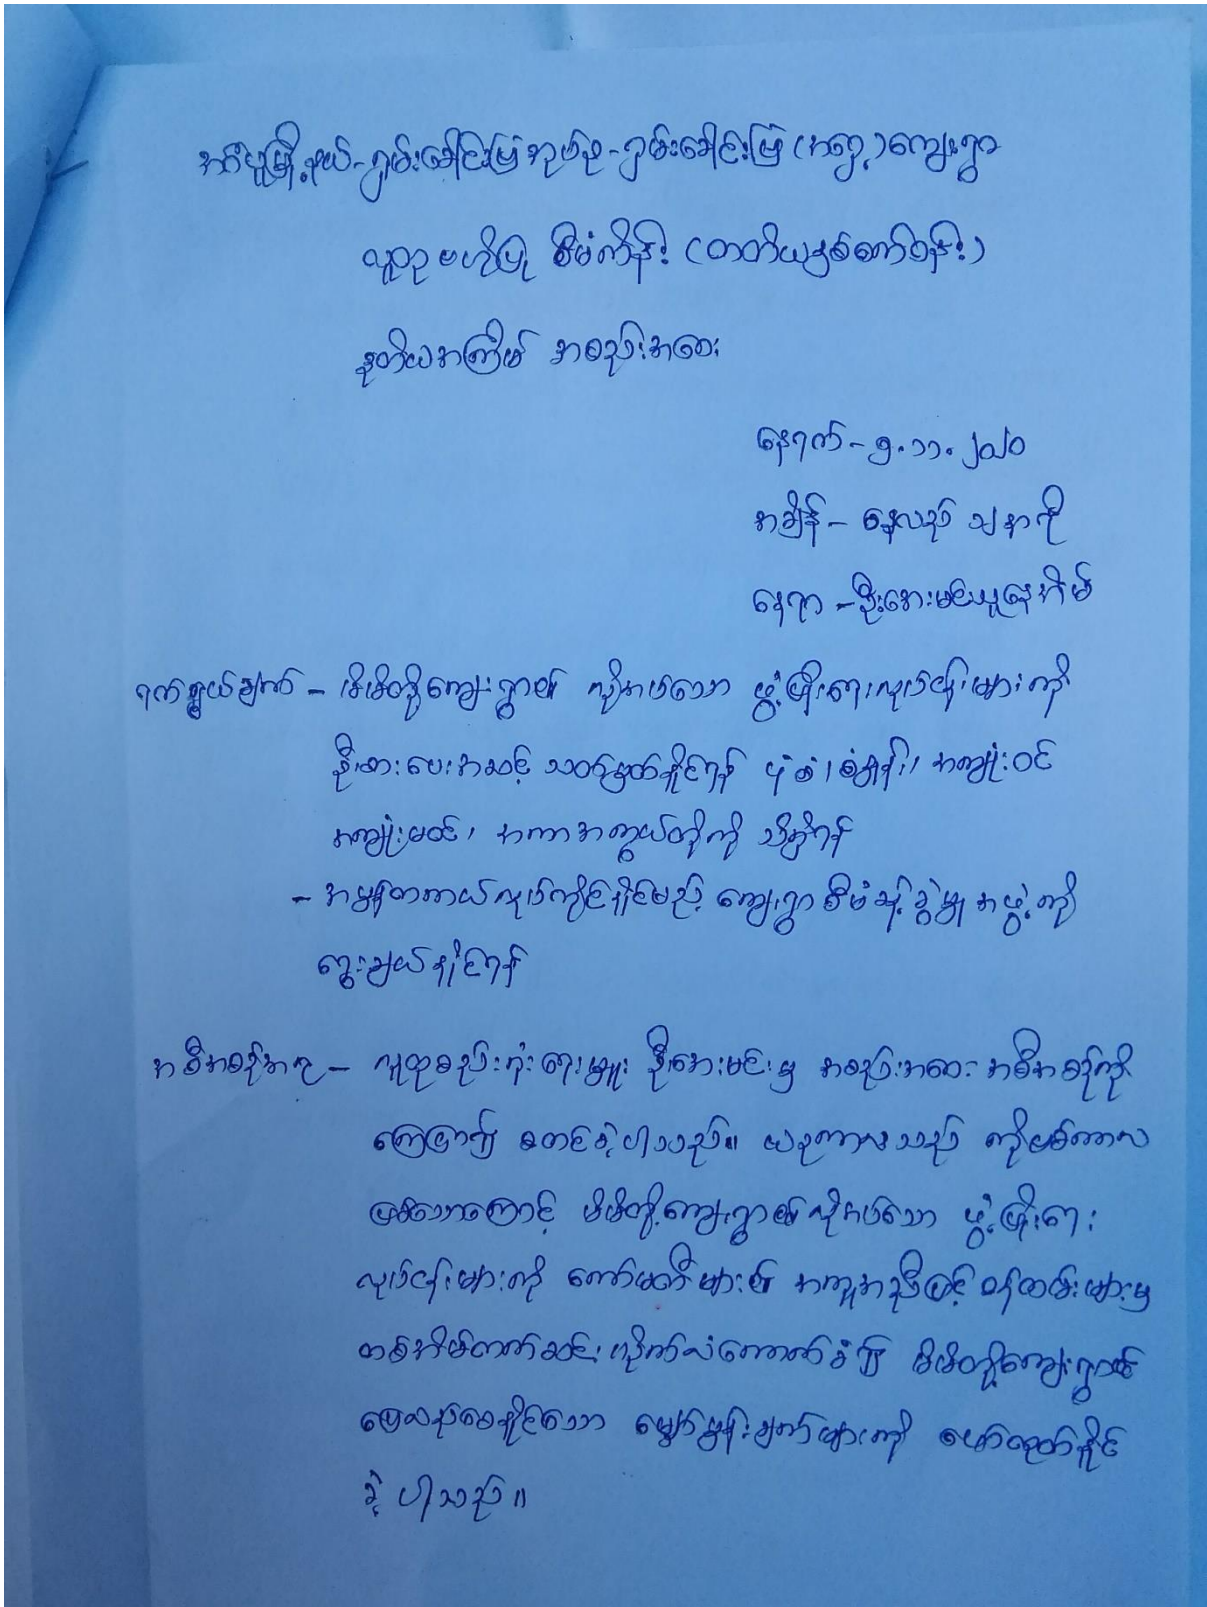 အမ်းမြို့နယ်-ရှမ်းခေါင်းမြုံအုပ်စု-ရှမ်းခေါင်းမြုံ(အရှေ့)ကျေးရွာ
လူထုဗဟိုပြု စီမံကိန်း (တတိယနှစ်စက်ဝန်း)
ဒုတိယအကြိမ် အစည်းအဝေး
နေ့ရက် - ၅.၁၁.၂၀၂၀
အချိန် - နေ့လည် ၁၂ နာရီ
နေရာ - ဦးအေးမင်းသူ၏နေအိမ်
ရည်ရွယ်ချက် - မိမိတို့ကျေးရွာ၏ လိုအပ်သော ဖွံ့ဖြိုးရေးလုပ်ငန်းများကို
ဦးစားပေးအဆင့် သတ်မှတ်နိုင်ရန် ပုံစံ၊ စံနှုန်း၊ အကျုံးဝင်
အကျုံးမဝင်၊ အကာအကွယ်တို့ကို သိရှိရန်
- အမှန်တကယ်လုပ်ကိုင်နိုင်မည့် ကျေးရွာစီမံခန့်ခွဲမှုအဖွဲ့ကို
ရွေးချယ်နိုင်ရန်
အစီအစဉ်အရ - လူထုစည်းရုံးရေးမှူး ဦးအေးမင်းမှ အစည်းအဝေး အစီအစဉ်ကို
ကြေငြာ၍ စတင်ခဲ့ပါသည်။ ယခုကာလသည် ကိုဗစ်ကာလ
ဖြစ်သောကြောင့် မိမိတို့ကျေးရွာ၏လိုအပ်သော ဖွံ့ဖြိုးရေး
လုပ်ငန်းများကို ကော်မတီများ၏ အကူအညီဖြင့် ဝန်ထမ်းများမှ
တစ်အိမ်တက်ဆင်း လိုက်လံကောက်ခံ၍ မိမိတို့ကျေးရွာ၏
ပြေလည်စေနိုင်သော မျှော်မှန်းချက်များကို ဖော်ထုတ်နိုင်
ခဲ့ပါသည်။